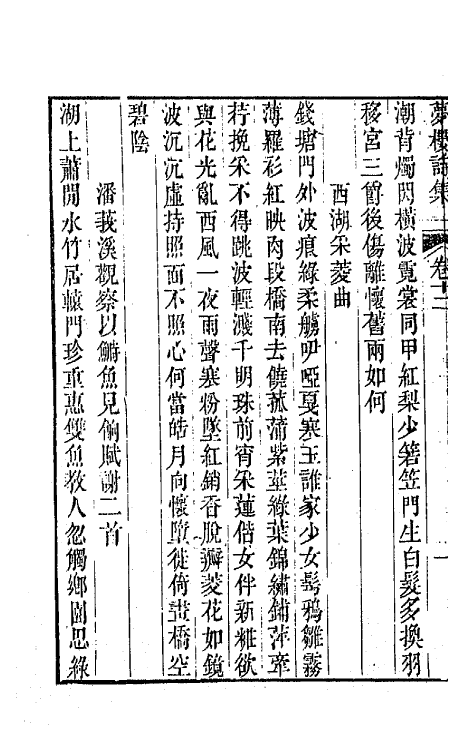 夢樓詩集 卷十二 一
潮背燭閃橫波霓裳同甲紅梨少箬笠門生白髮多換羽
移宮三爵後傷離懷舊兩如何
西湖采菱曲
錢塘門外波痕綠柔艣咿啞戛寒玉誰家少女髩鴉雛霧
薄羅衫紅映肉段橋南去饒菰蒲紫莖綠葉錦繡鋪萍牽
荇挽采不得跳波輕濺千明珠前宵采蓮偕女伴新粧欲
與花光亂西風一夜雨聲寒粉墜紅銷香脫瓣菱花如鏡
波沉沉虛持照面不照心何當皓月向懷墮徙倚畫橋空
碧陰
潘莪溪觀察以鰣魚見餉賦謝二首
湖上蕭閒水竹居轅門珍重惠雙魚教人忽觸鄉園思綠